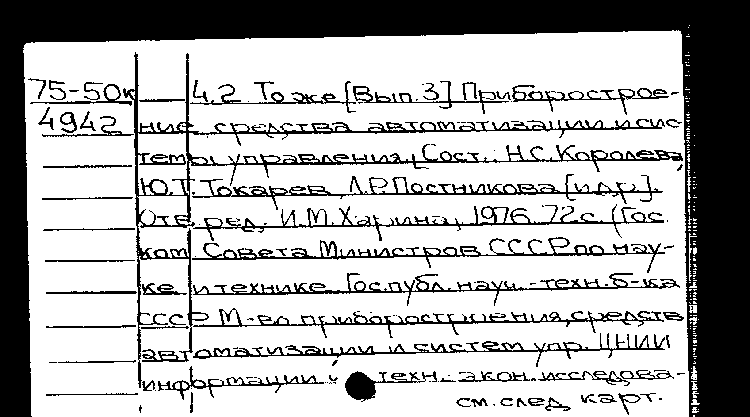 75-50к 4.2 То же [Вып. 3] Приборострое-
4942 ние, средства автоматизации и сис-
темы управления, [Сост.: Н.С. Королева,
Ю.Т. Токарев, Л.Р. Постникова [и др.].
Отв. ред. И.М. Харина, 1976. 72 с. (Гос.
ком. Совета Министров СССР по нау-
ке и технике. Гос. публ. науч.-техн. б-ка
СССР. М-во приборостроения, средств
автоматизации и систем упр. ЦНИИ
информации и техн.-экон. исследова-
см. след. карт.